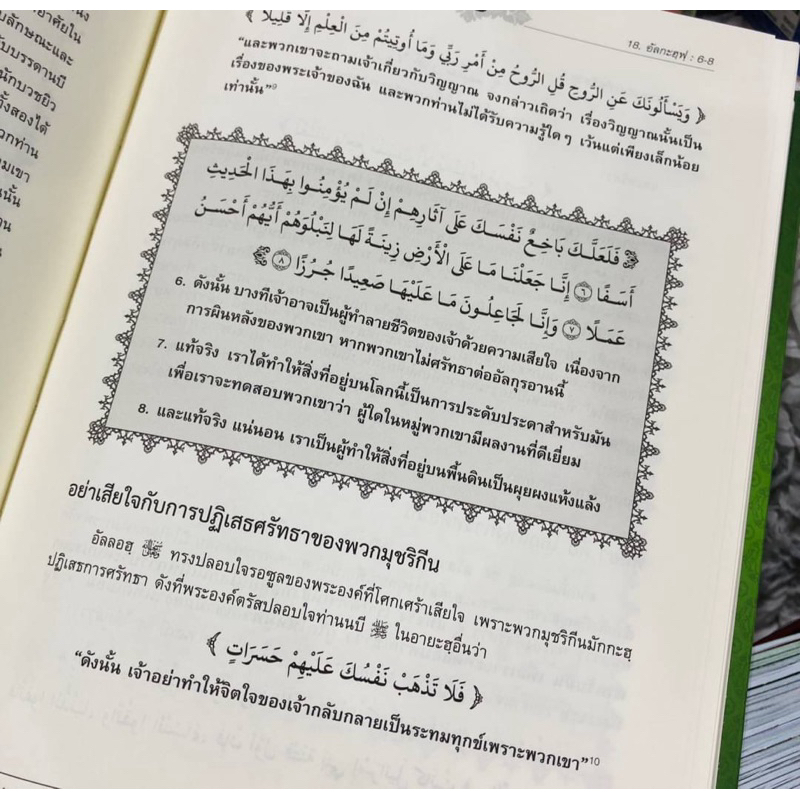 18. อัลกะฮฺฟ : 6-8
﴿ وَيَسْأَلُونَكَ عَنِ الرُّوحِ قُلِ الرُّوحُ مِنْ أَمْرِ رَبِّي وَمَا أُوتِيتُمْ مِنَ الْعِلْمِ إِلَّا قَلِيلًا ﴾
“และพวกเขาจะถามเจ้าเกี่ยวกับวิญญาณ จงกล่าวเถิดว่า เรื่องวิญญาณนั้นเป็น
เรื่องของพระเจ้าของฉัน และพวกท่านไม่ได้รับความรู้ใด ๆ เว้นแต่เพียงเล็กน้อย
เท่านั้น”⁹
فَلَعَلَّكَ بَاخِعٌ نَفْسَكَ عَلَى آثَارِهِمْ إِنْ لَمْ يُؤْمِنُوا بِهَذَا الْحَدِيثِ
أَسَفًا ۝٦ إِنَّا جَعَلْنَا مَا عَلَى الْأَرْضِ زِينَةً لَهَا لِنَبْلُوَهُمْ أَيُّهُمْ أَحْسَنُ
عَمَلًا ۝٧ وَإِنَّا لَجَاعِلُونَ مَا عَلَيْهَا صَعِيدًا جُرُزًا ۝٨
6. ดังนั้น บางทีเจ้าอาจเป็นผู้ทำลายชีวิตของเจ้าด้วยความเสียใจ เนื่องจาก
การผินหลังของพวกเขา หากพวกเขาไม่ศรัทธาต่ออัลกุรอานนี้
7. แท้จริง เราได้ทำให้สิ่งที่อยู่บนโลกนี้เป็นการประดับประดาสำหรับมัน
เพื่อเราจะทดสอบพวกเขาว่า ผู้ใดในหมู่พวกเขามีผลงานที่ดีเยี่ยม
8. และแท้จริง แน่นอน เราเป็นผู้ทำให้สิ่งที่อยู่บนพื้นดินเป็นผุยผงแห้งแล้ง
อย่าเสียใจกับการปฏิเสธศรัทธาของพวกมุชริกีน
อัลลอฮฺ ทรงปลอบใจรอซูลของพระองค์ที่โศกเศร้าเสียใจ เพราะพวกมุชริกีนมักกะฮฺ
ปฏิเสธการศรัทธา ดังที่พระองค์ตรัสปลอบใจท่านนบี ﷺ ในอายะฮฺอื่นว่า
﴿ فَلَا تَذْهَبْ نَفْسُكَ عَلَيْهِمْ حَسَرَاتٍ ﴾
“ดังนั้น เจ้าอย่าทำให้จิตใจของเจ้ากลับกลายเป็นระทมทุกข์เพราะพวกเขา”¹⁰